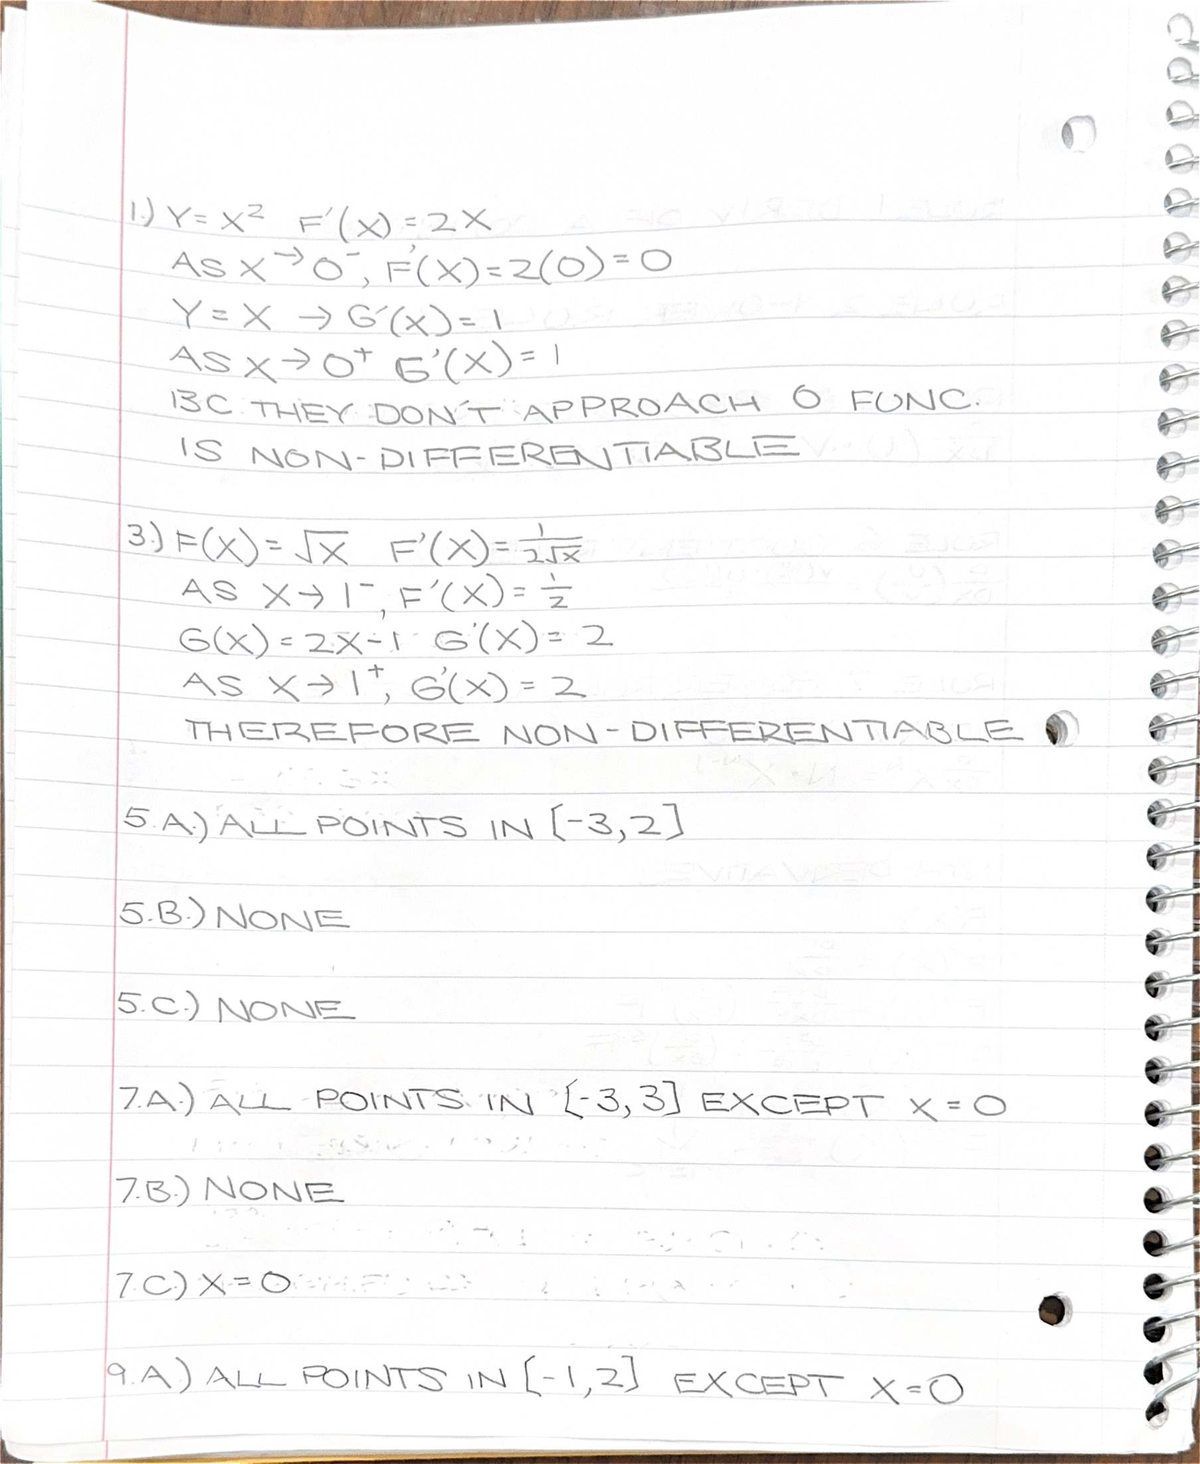 1.) Y = X² F'(X) = 2X
AS X → 0⁻, F'(X) = 2(0) = 0
Y = X → G'(X) = 1
AS X → 0⁺ G'(X) = 1
BC THEY DON'T APPROACH 0 FUNC.
IS NON-DIFFERENTIABLE
3.) F(X) = √X F'(X) = 1/(2√X)
AS X → 1⁻, F'(X) = 1/2
G(X) = 2X-1 G'(X) = 2
AS X → 1⁺, G'(X) = 2
THEREFORE NON-DIFFERENTIABLE
5.A.) ALL POINTS IN [-3,2]
5.B.) NONE
5.C.) NONE
7.A.) ALL POINTS IN [-3,3] EXCEPT X = 0
7.B.) NONE
7.C.) X = 0
9.A.) ALL POINTS IN [-1,2] EXCEPT X = 0